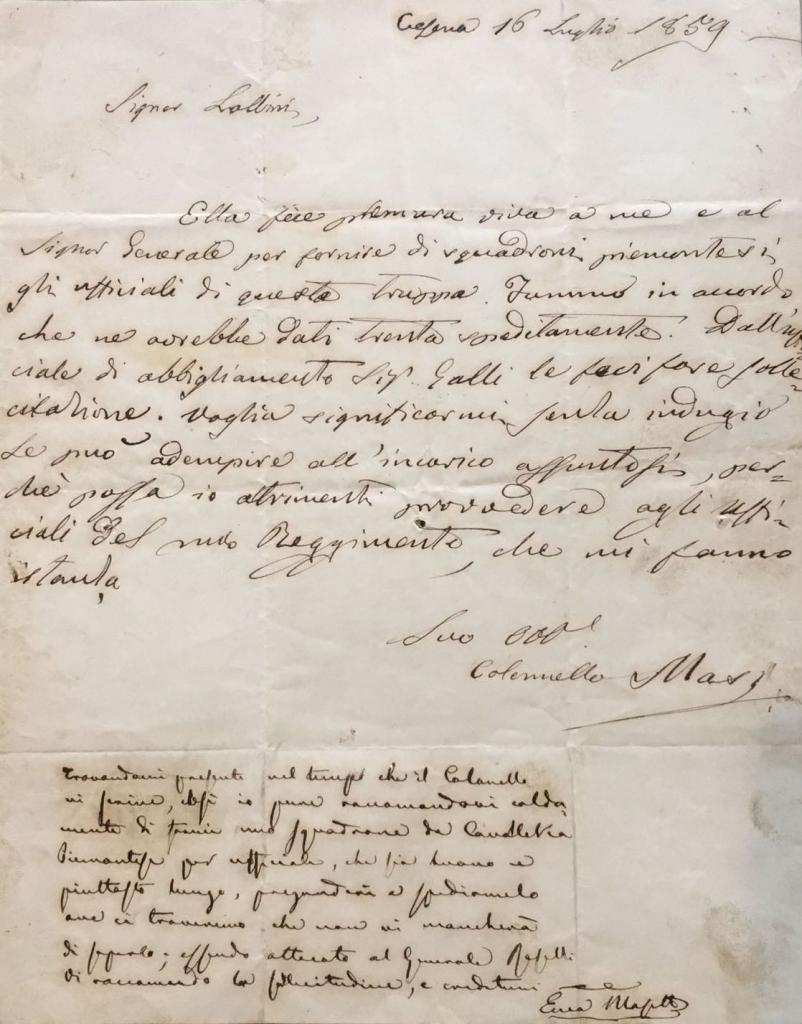 Cesena 16 Luglio 1859
Signor Lollini,
Ella fece premura viva a me e al
Signor Generale per fornire di squadroni piemontesi
gli ufficiali di questa truppa. Fummo in accordo
che ne avrebbe dati trenta speditamente. Dall'uffi-
ciale di abbigliamento Sig. Galli le feci fare solle-
citazione. Voglia significarmi senza indugio
se può adempire all'incarico assuntosi, per-
chè possa io altrimenti provvedere agli uffi-
ciali del mio Reggimento, che mi fanno
istanza
Suo
Colonnello Masi
Trovandomi presente nel tempo che il Colonnello
vi scrive, così io pure raccomandovi calda-
mente di uno squadrone da Cavalleria
Piemontese per ufficiale, che sia buono e
piuttosto lungo, a spedirmelo
ove ci troveremo che non vi mancherà
di saperlo; essendo attaccato al Generale Roselli
Vi raccomando la sollecitudine, e credetemi